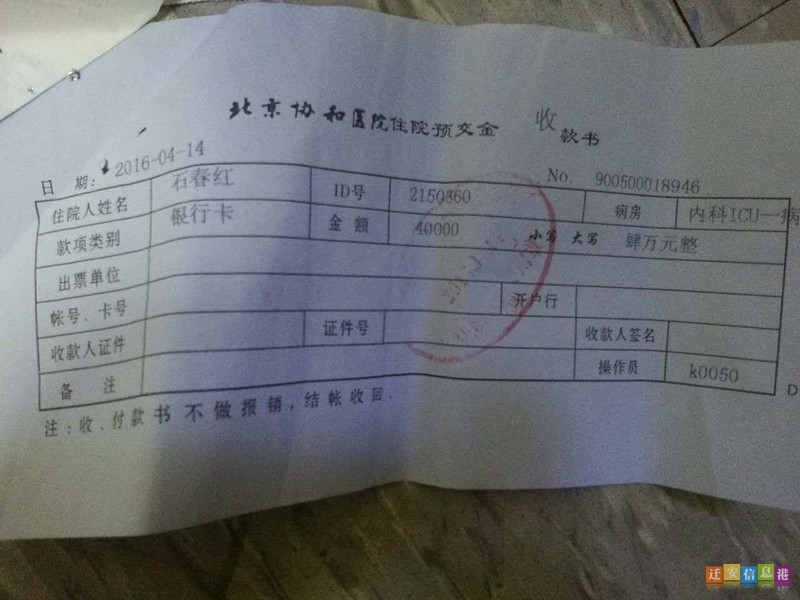 北京协和医院住院预交金 收款书
日 期: 2016-04-14 No. 900500018946
住院人姓名 石春红 ID号 2150860 病房 内科ICU一病
款项类别 银行卡 金 额 40000 小写 大写 肆万元整
出票单位
帐号、卡号 开户行
收款人证件 证件号 收款人签名
备 注 操作员 k0050
D
注:收、付款书不做报销,结帐收回.
迁安信息港